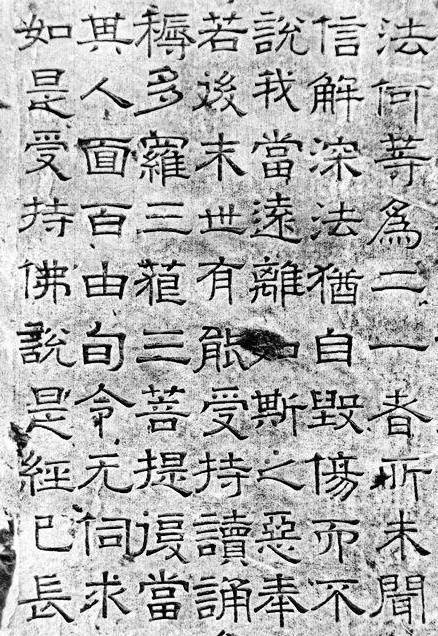 法何等為二一者所未聞
信解深法猶自毀傷而不
說我當遠離如斯之惡奉
若後末世有能受持讀誦
耨多羅三藐三菩提復當
其人面百由旬令无伺求
如是受持佛說是經已長